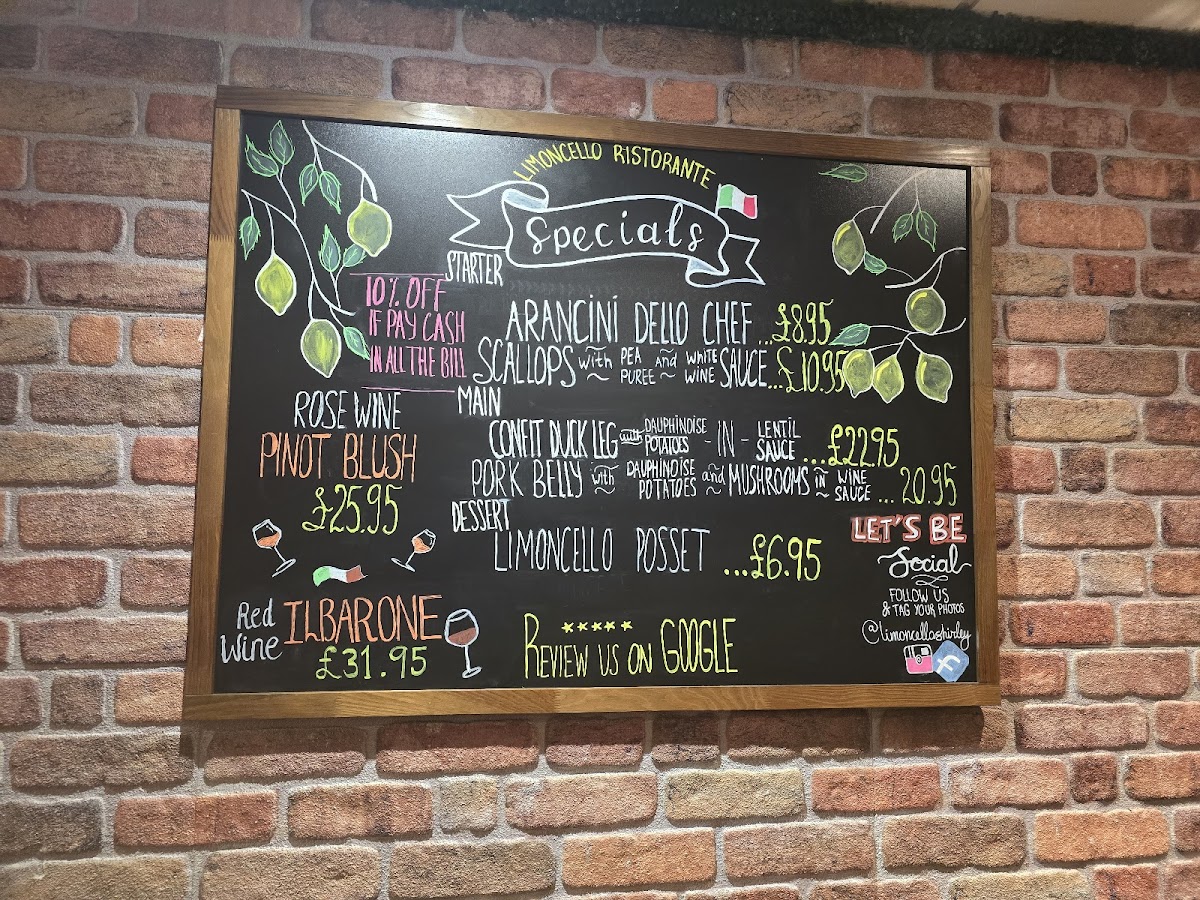 LIMONCELLO RISTORANTE
Specials
STARTER
10% OFF
IF PAY CASH
IN ALL THE BILL
ARANCINI DELLO CHEF ...£8.95
SCALLOPS with PEA PUREE and WHITE WINE SAUCE...£10.95
MAIN
ROSE WINE
PINOT BLUSH
£25.95
CONFIT DUCK LEG with DAUPHINOISE POTATOES - IN - LENTIL SAUCE ...£22.95
PORK BELLY with DAUPHINOISE POTATOES and MUSHROOMS in WINE SAUCE ... 20.95
DESSERT
LIMONCELLO POSSET ...£6.95
Red Wine ILBARONE
£31.95
REVIEW US ON GOOGLE
LET'S BE
Social
FOLLOW US
& TAG YOUR PHOTOS
@limoncelloshirley
f